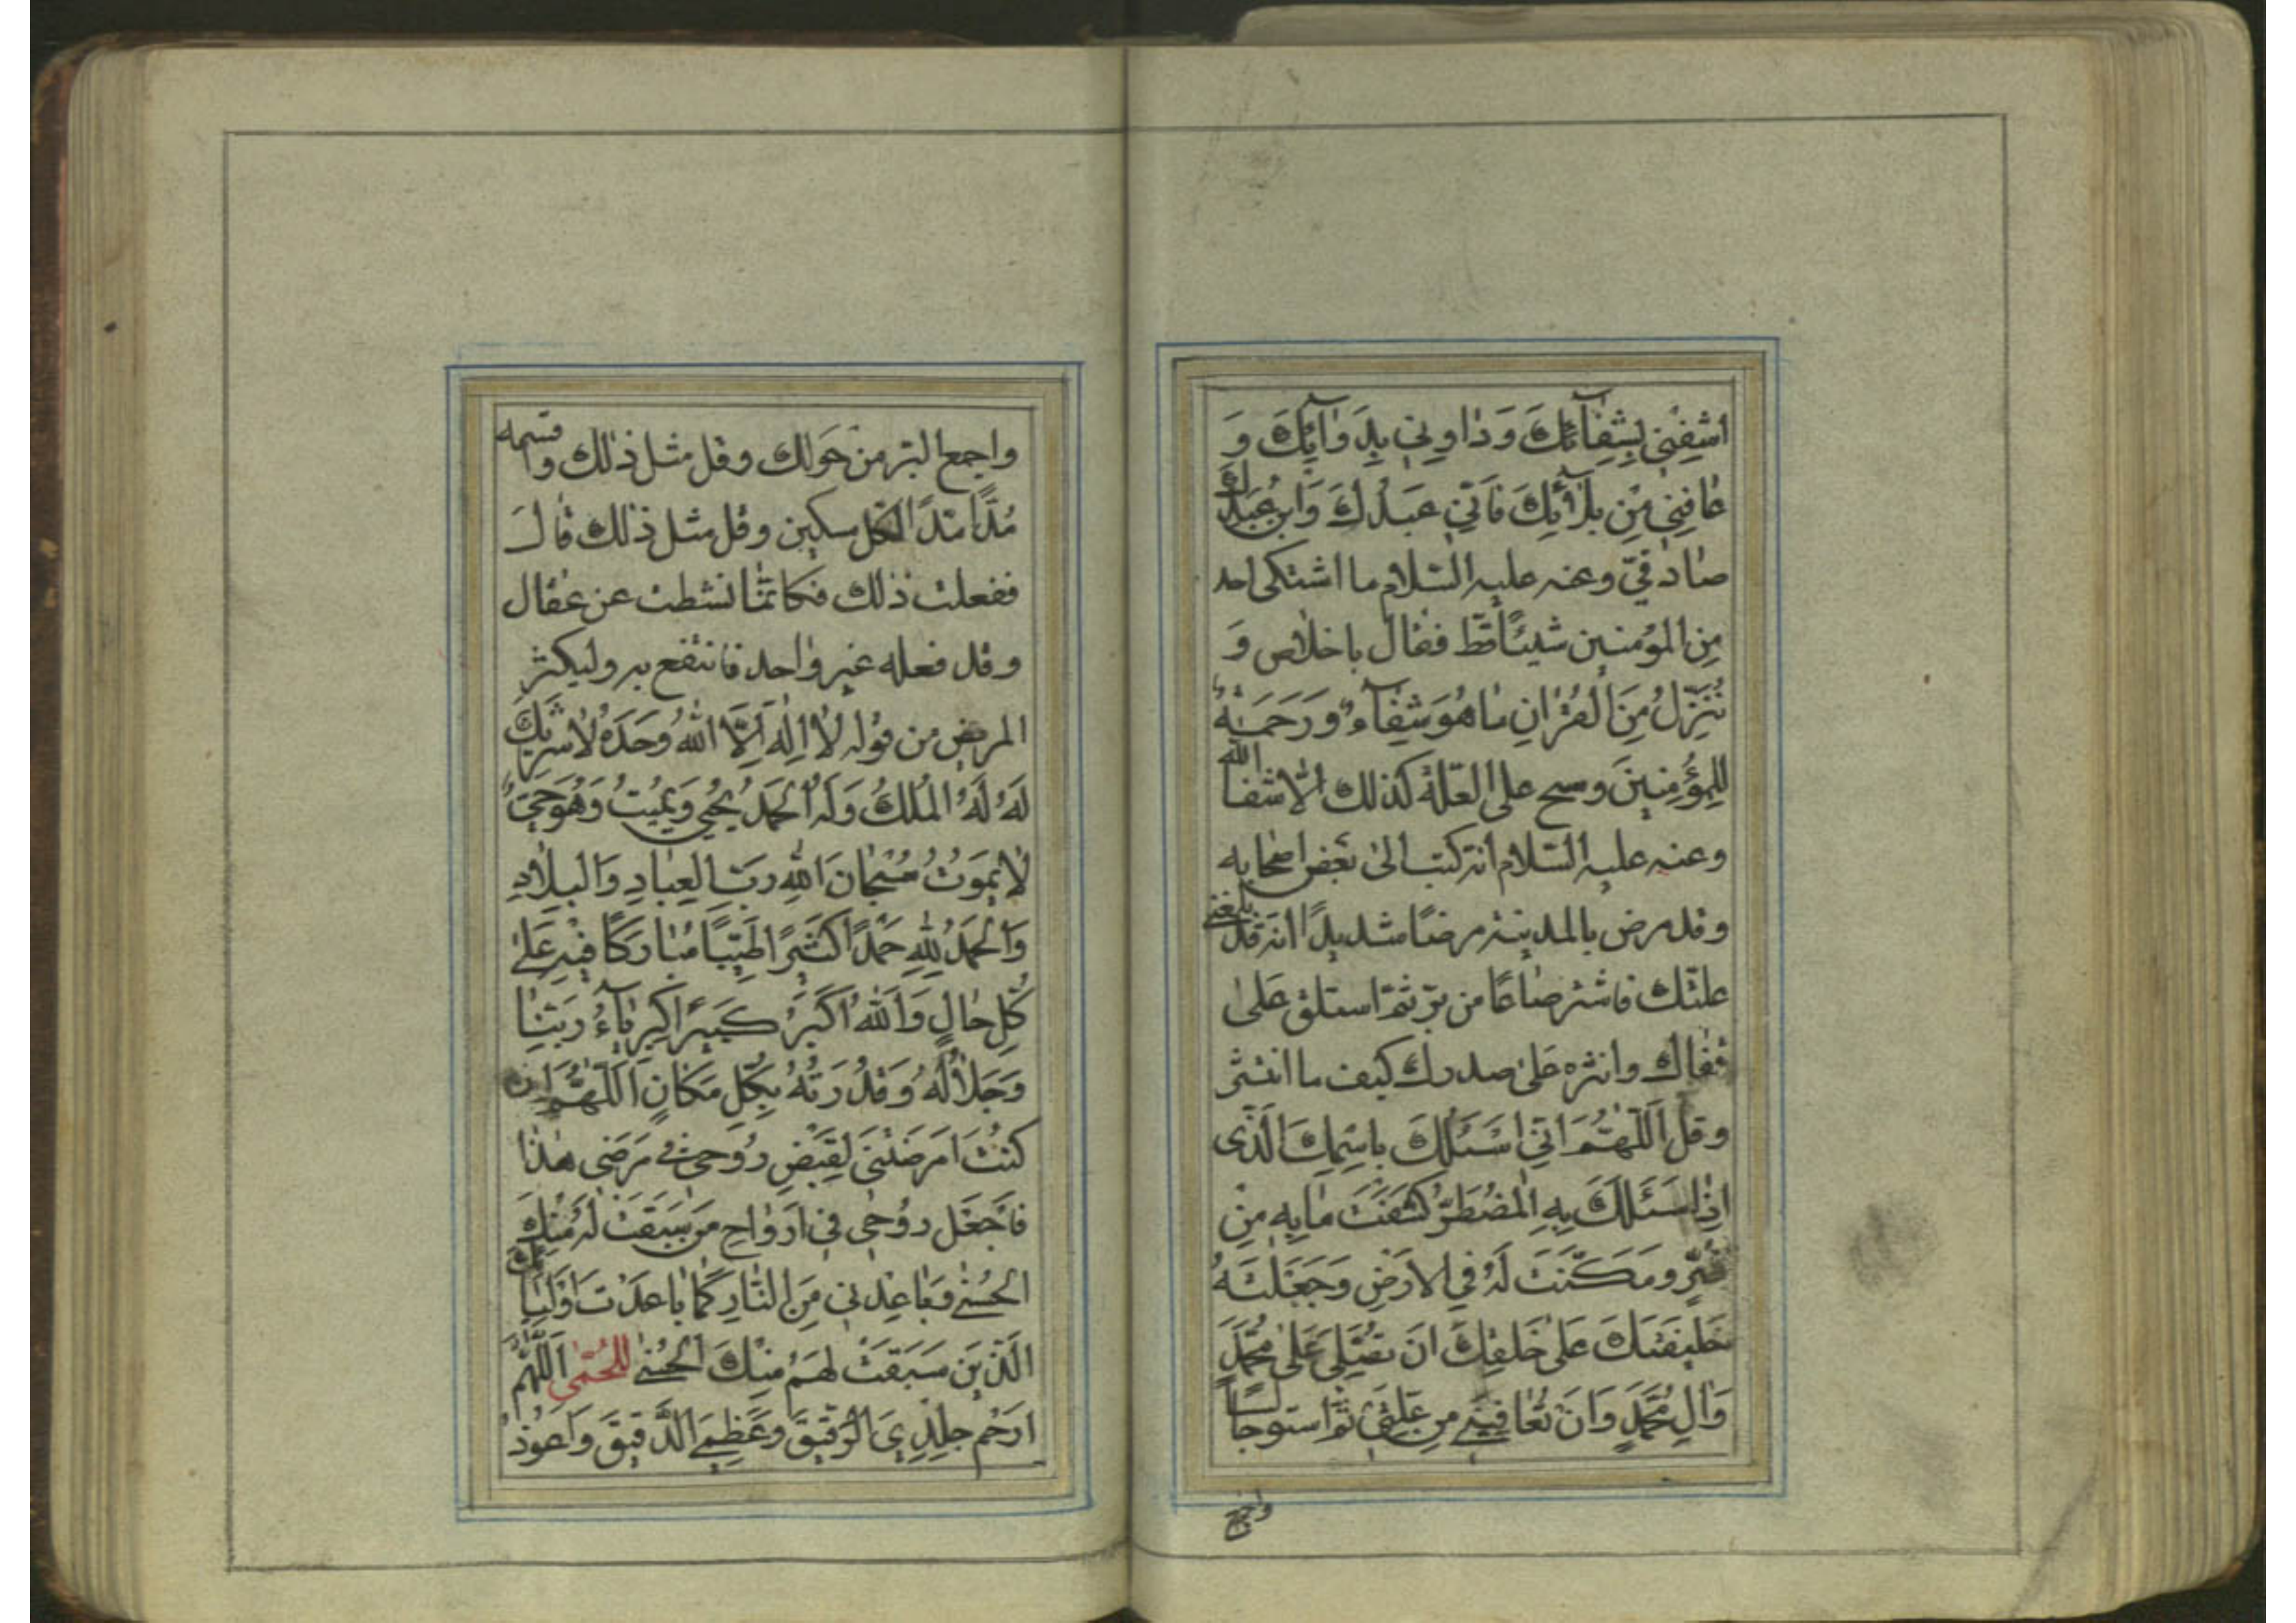 اشْفِنِي بِشِفَآئِكَ وَدَاوِنِي بِدَوَآئِكَ وَ
عَافِنِي مِنْ بَلَآئِكَ فَاِنِّي عَبْدُكَ وَابْنُ عَبْدِكَ
صادقيّ وعنه عليه السّلام ما اشتكى احد
مِن المؤمنين شيئًا قطّ فقال باخلاص وَ
نُنَزِّلُ مِنَ الْقُرْاٰنِ مَا هُوَ شِفَآءٌ وَرَحْمَةٌ
لِلْمُؤْمِنِينَ ومسح على العلّة كذلك الّا شفاه الله
وعنه عليه السّلام انّه كتب الى بعض اصحابه
وقد مرض بالمدينة مرضًا شديدًا انه قد بلغني
علّتك فاشتر صاعًا من برّ ثمّ استلق على
قفاك وانثره على صدرك كيف ما انتثر
وقل اَللّٰهُمَّ اِنِّي اَسْئَلُكَ بِاسْمِكَ الَّذِى
اِذَا سَئَلَكَ بِهِ الْمُضْطَرُّ كَشَفْتَ مَا بِهِ مِنْ
ضُرٍّ وَمَكَّنْتَ لَهُ فِي الْاَرْضِ وَجَعَلْتَهُ
خَلِيفَتَكَ عَلٰى خَلْقِكَ اَنْ تُصَلِّيَ عَلٰى مُحَمَّدٍ
وَاٰلِ مُحَمَّدٍ وَاَنْ تُعَافِيَنِي مِنْ عِلَّتِي ثمّ استو جالسًا
واجمع
واجمع البرّ من حَولك وقل مثل ذلك واقسمه
مُدًّا مدًّا لكل مسكين وقل مثل ذلك قال
ففعلت ذلك فكانّما نشطت عن عقال
وقد فعله غير واحد فانتفع به وليكثر
المريض من قوله لَا اِلٰهَ اِلَّا اللّٰهُ وَحْدَهُ لَا شَرِيكَ
لَهُ لَهُ الْمُلْكُ وَلَهُ الْحَمْدُ يُحْيِي وَيُمِيتُ وَهُوَ حَيٌّ
لَا يَمُوتُ سُبْحَانَ اللّٰهِ رَبِّ الْعِبَادِ وَالْبِلَادِ
وَالْحَمْدُ لِلّٰهِ حَمْدًا كَثِيرًا طَيِّبًا مُبَارَكًا فِيهِ عَلٰى
كُلِّ حَالٍ وَاللّٰهُ اَكْبَرُ كَبِيرًا كِبْرِيَآءُ رَبِّنَا
وَجَلَالُهُ وَقُدْرَتُهُ بِكُلِّ مَكَانٍ اَللّٰهُمَّ اِنْ
كُنْتَ اَمْرَضْتَنِي لِقَبْضِ رُوحِي فِي مَرَضِي هٰذَا
فَاجْعَلْ رُوحِي فِي اَرْوَاحِ مَنْ سَبَقَتْ لَهُ مِنْكَ
الْحُسْنٰى وَبَاعِدْنِي مِنَ النَّارِ كَمَا بَاعَدْتَ اَوْلِيَآئَكَ
الَّذِينَ سَبَقَتْ لَهُمْ مِنْكَ الْحُسْنٰى للحُمّى اَللّٰهُمَّ
ارْحَمْ جِلْدِيَ الرَّقِيقَ وَعَظْمِيَ الدَّقِيقَ وَاَعُوذُ